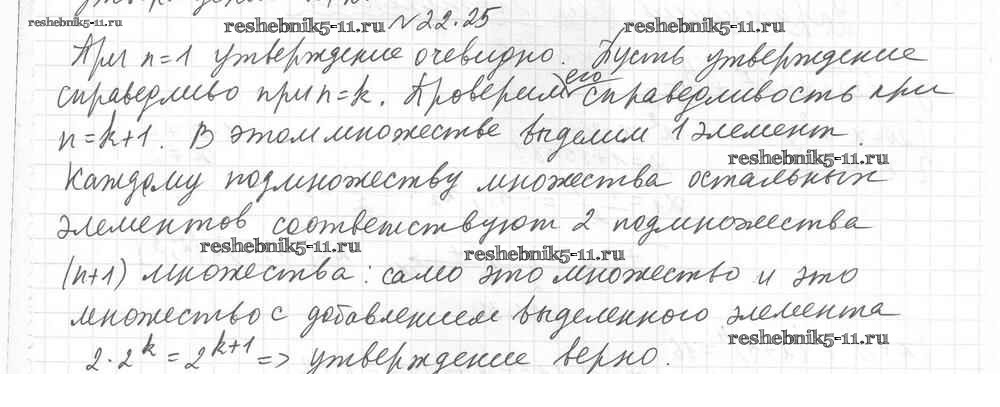 reshebnik5-11.ru
reshebnik5-11.ru №22.25 reshebnik5-11.ru
При n=1 утверждение очевидно. Пусть утверждение
справедливо при n=k. Проверим его справедливость при
n=k+1. В этом множестве выделим 1 элемент.
reshebnik5-11.ru
Каждому подмножеству множества остальных
элементов соответствуют 2 подмножества
reshebnik5-11.ru reshebnik5-11.ru
(n+1) множества: само это множество и это
множество с добавлением выделенного элемента
reshebnik5-11.ru
2·2^k = 2^(k+1) => утверждение верно.